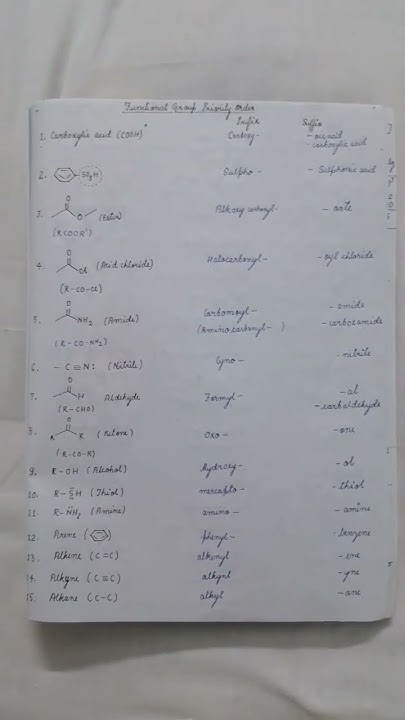 Functional Group Priority Order
Prefix Suffix
1. Carboxylic acid (COOH) Carboxy- -oic acid
- carboxylic acid
2. SO₃H Sulpho - - Sulphonic acid
O
3. O (Ester) Alkoxy carbonyl- - oate
(RCOOR')
O
4. Cl (Acid chloride) Halocarbonyl- -oyl chloride
(R-CO-Cl)
O
5. NH₂ (Amide) Carbamoyl - - amide
(Amino carbonyl- ) - carboxamide
(R-CO-NH₂)
6. - C ≡ N: (Nitrile) Cyno - - nitrile
O
7. H Aldehyde Formyl- - al
(R-CHO) - carbaldehyde
O
8. R R (Ketone) Oxo - - one
(R-CO-R)
9. R-OH (Alcohol) hydroxy- - ol
10. R-SH (Thiol) mercapto- - thiol
11. R-NH₂ (Amine) amino- - amine
12. Arene ( ) phenyl- - benzene
13. Alkene (C=C) alkenyl - ene
14. Alkyne (C≡C) alkynl - yne
15. Alkane (C-C) alkyl - ane